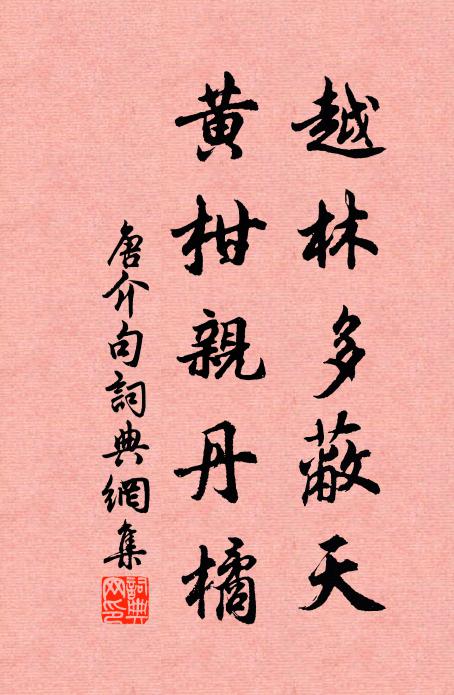 越林多蔽天
黄柑親丹橘
唐介句詞典網集
詞典网印